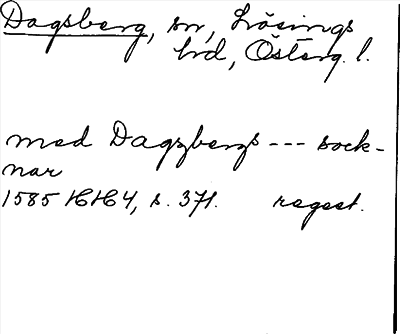 Dagsberg, sn, Lösings
hd, Österg. l.
med Dagzbergs --- sock-
nar
1585 HH 4, s. 371. regest.